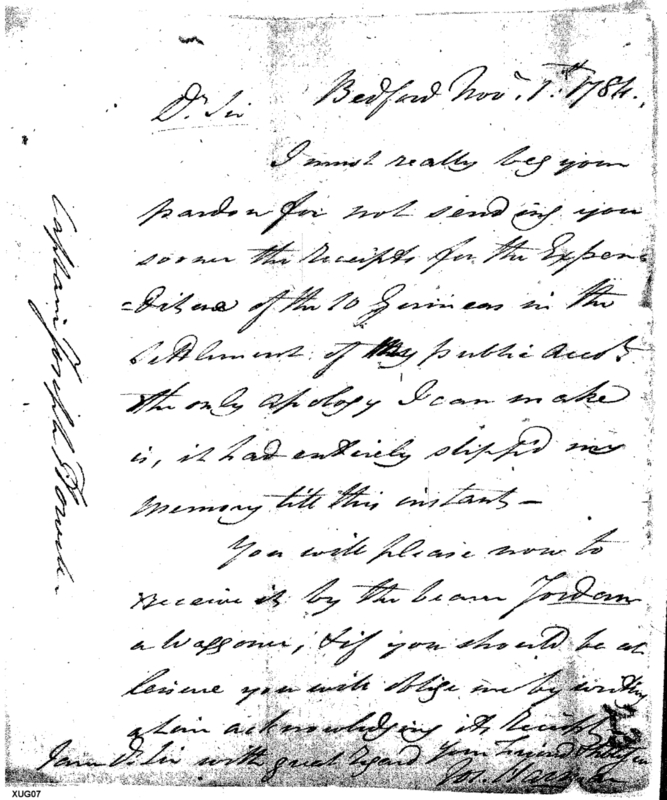 Bedford Novr. 1st. 1784.
Dr Sir
I must really beg your
pardon for not sending you
sooner the receipts for the Expen
=diture of the 10 Guineas in the
Settlement of my public Accots.
the only apology I can make
is, it had entirely slipp'd my
memory till this instant –
You will please now to
receive it by the bearer Jordan
a Waggoner, & if you should be at
leisure you will oblige me by writing
a line acknowledging its Receipt
I am Dr Sir with great regard your friend
Jos.
Captain Joseph
XUG07